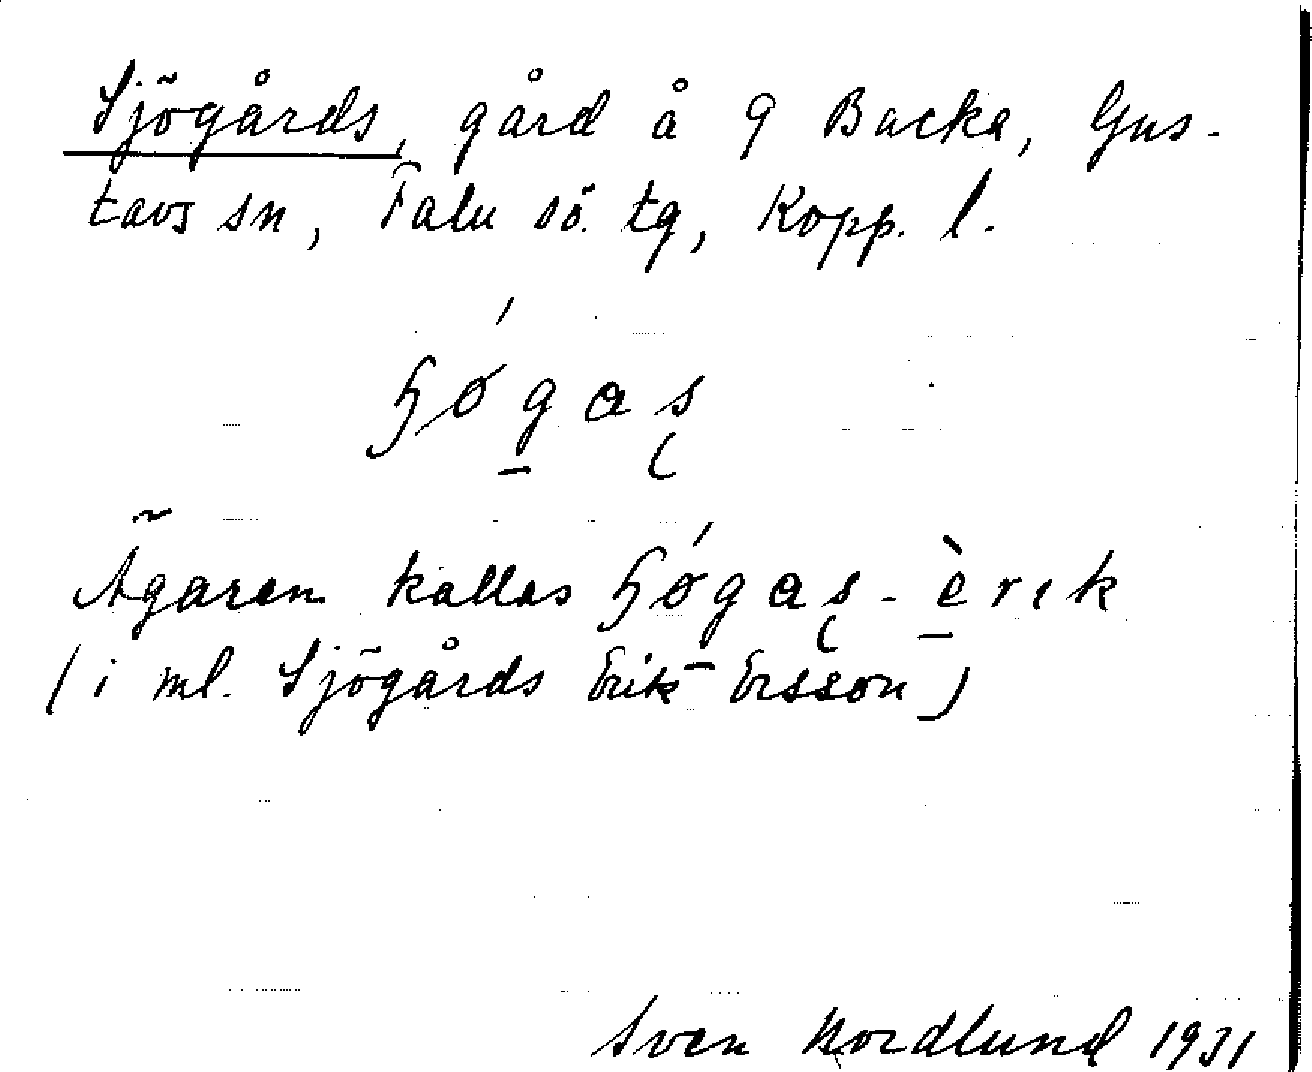 Sjögårds, gård å 9 Backa, Gus-
tavs sn, Falu sö. tg, Kopp. l.
ʃøgas
Ägaren kallas ʃøgas-èrik
(i ml. Sjögårds Erik Ersson)
Sven Nordlund 1931